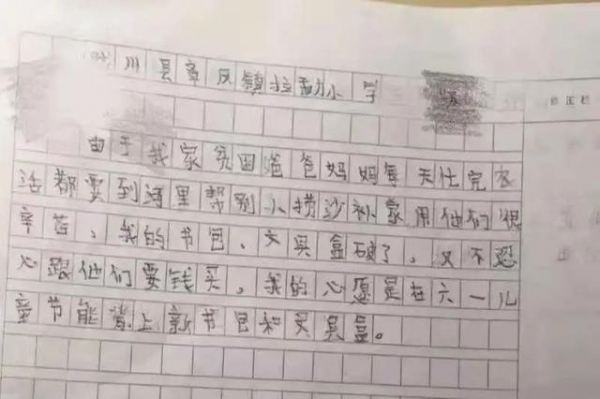 川县章凤镇拉勐小学
由于我家贫困爸爸妈妈每天仕完农
活都要到河里帮别人捞沙补家用他们很
辛苦、我的书包、文具盒破了、又不忍
心跟他们要钱买、我的心愿是在六一儿
童节能背上新书包和文具盒。